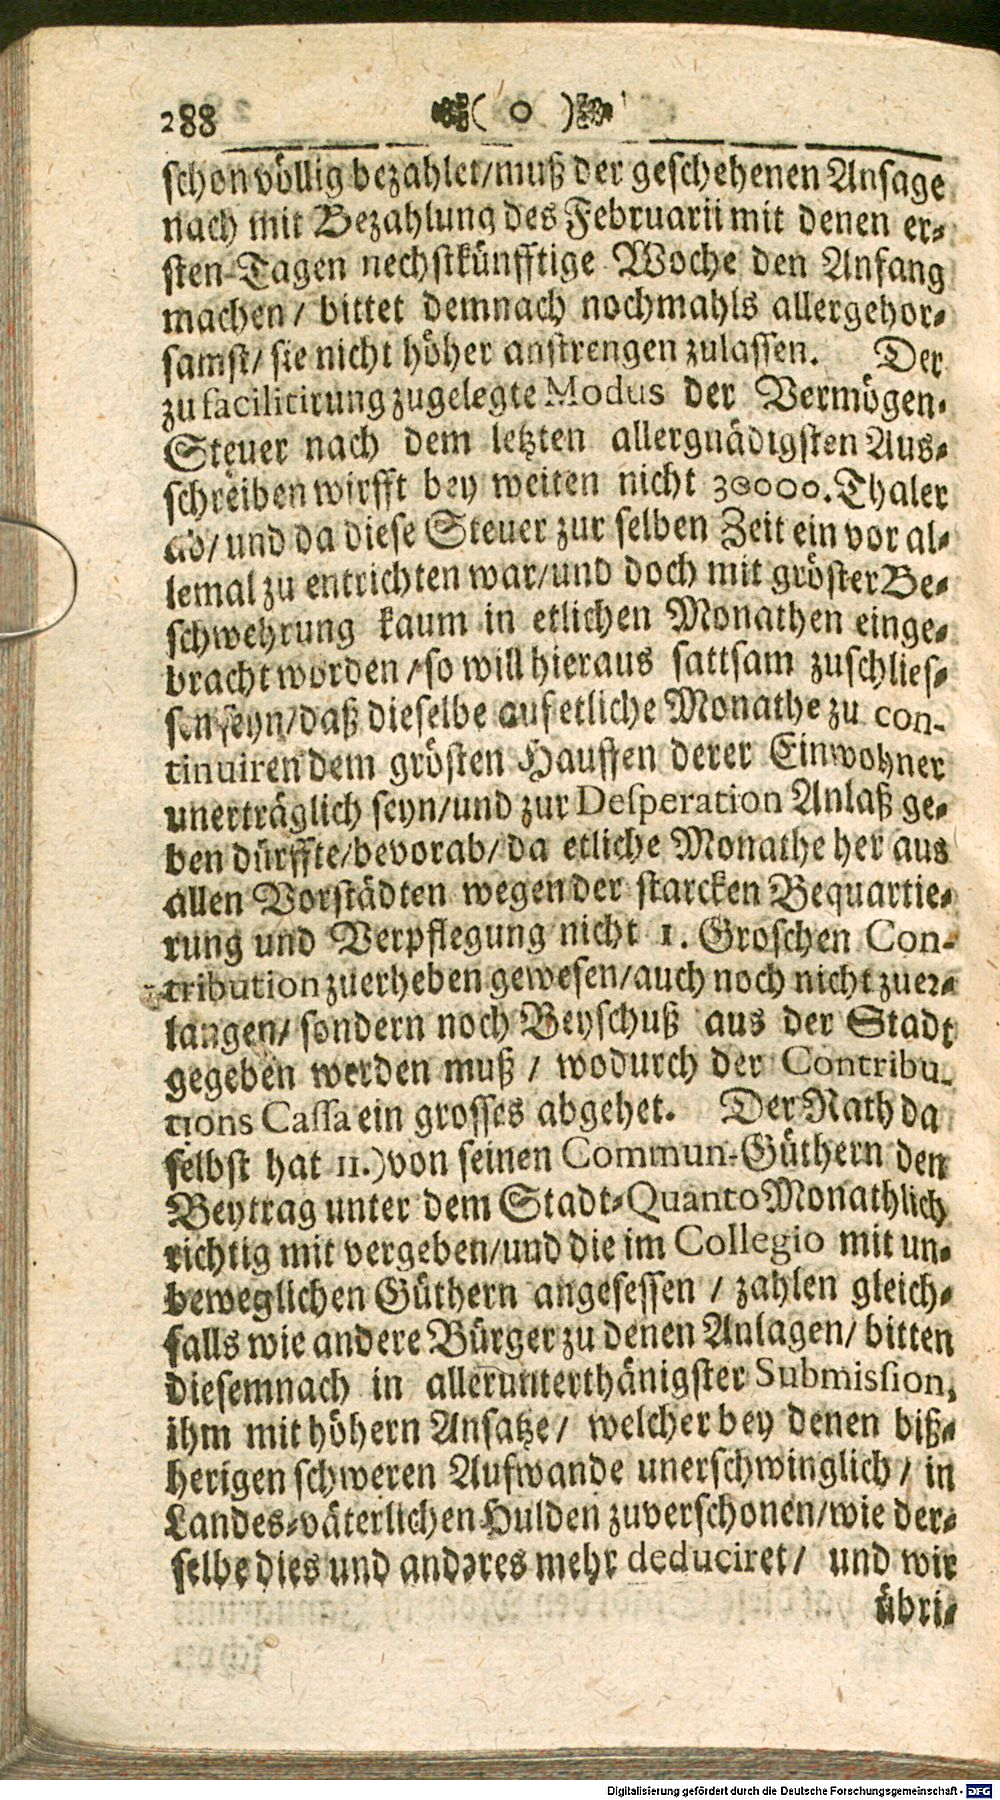 288 ( o )
schon völlig bezahlet/muß der geschehenen Ansage
nach mit Bezahlung des Februarii mit denen er-
sten Tagen nechstkünfftige Woche den Anfang
machen/ bittet demnach nochmahls allergehor-
samst/ sie nicht höher anstrengen zulassen. Der
zu facilitirung zugelegte Modus der Vermögen-
Steuer nach dem letzten allergnädigsten Aus-
schreiben wirfft bey weiten nicht 30000. Thaler
ab/ und da diese Steuer zur selben Zeit ein vor al-
lemal zu entrichten war/und doch mit gröster Be-
schwehrung kaum in etlichen Monathen einge-
bracht worden/so will hieraus sattsam zuschlies-
sen seyn/daß dieselbe auf etliche Monathe zu con-
tinuiren dem grösten Hauffen derer Einwohner
unerträglich seyn/und zur Desperation Anlaß ge-
ben dürffte/bevorab/da etliche Monathe her aus
allen Vorstädten wegen der starcken Bequartie-
rung und Verpflegung nicht 1. Groschen Con-
tribution zuerheben gewesen/auch noch nicht zuer-
langen/ sondern noch Beyschuß aus der Stadt
gegeben werden muß / wodurch der Contribu-
tions Cassa ein grosses abgehet. Der Rath da
selbst hat 11.) von seinen Commun-Güthern den
Beytrag unter dem Stadt-Quanto Monathlich
richtig mit vergeben/und die im Collegio mit un-
beweglichen Güthern angesessen / zahlen gleich-
falls wie andere Bürger zu denen Anlagen/ bitten
diesemnach in allerunterthänigster Submission,
ihm mit höhern Ansatze/ welcher bey denen biß-
herigen schweren Aufwande unerschwinglich/ in
Landes-väterlichen Hulden zuverschonen/wie der-
selbe dies und anderes mehr deduciret/ und wir
übri-
Digitalisierung gefördert durch die Deutsche Forschungsgemeinschaft - DFG